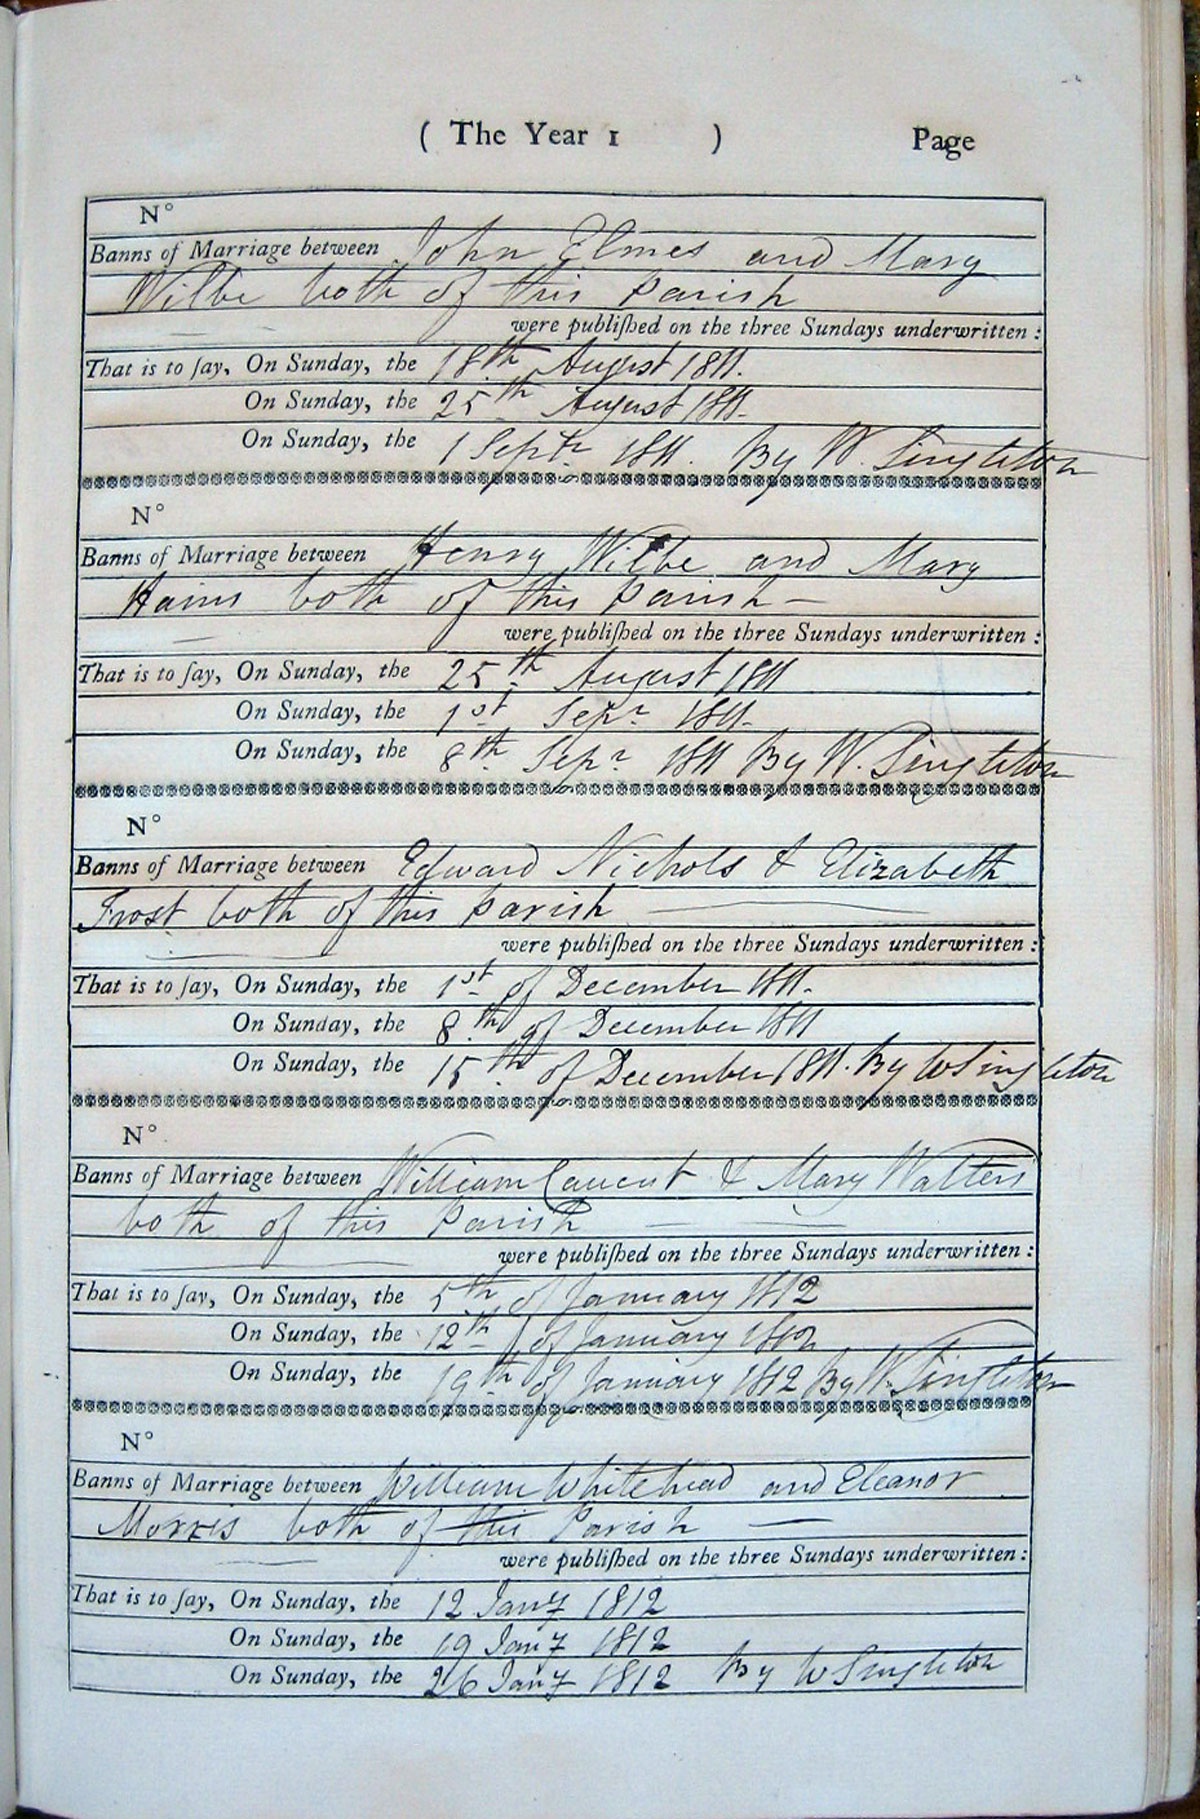 ( The Year 1 ) Page
N°
Banns of Marriage between John Elmes and Mary
Wilbe both of this Parish
were publiſhed on the three Sundays underwritten :
That is to ſay, On Sunday, the 18th August 1811.
On Sunday, the 25th August 1811.
On Sunday, the 1 Septr 1811. By W. Singleton
N°
Banns of Marriage between Henry Wilbe and Mary
Hains both of this Parish —
were publiſhed on the three Sundays underwritten :
That is to ſay, On Sunday, the 25th August 1811
On Sunday, the 1st Sepr 1811.
On Sunday, the 8th Sepr 1811 By W. Singleton
N°
Banns of Marriage between Edward Nichols & Elizabeth
Frost both of this parish
were publiſhed on the three Sundays underwritten :
That is to ſay, On Sunday, the 1st of December 1811.
On Sunday, the 8th of December 1811
On Sunday, the 15th of December 1811. By W Singleton
N°
Banns of Marriage between William & Mary Walters
both of this Parish
were publiſhed on the three Sundays underwritten :
That is to ſay, On Sunday, the 5th of January 1812
On Sunday, the 12th of January 1812
On Sunday, the 19th of January 1812 By W. Singleton
N°
Banns of Marriage between William Whitehead and Eleanor
Morris both of this Parish —
were publiſhed on the three Sundays underwritten :
That is to ſay, On Sunday, the 12 Jany 1812
On Sunday, the 19 Jany 1812
On Sunday, the 26 Jany 1812 By W Singleton